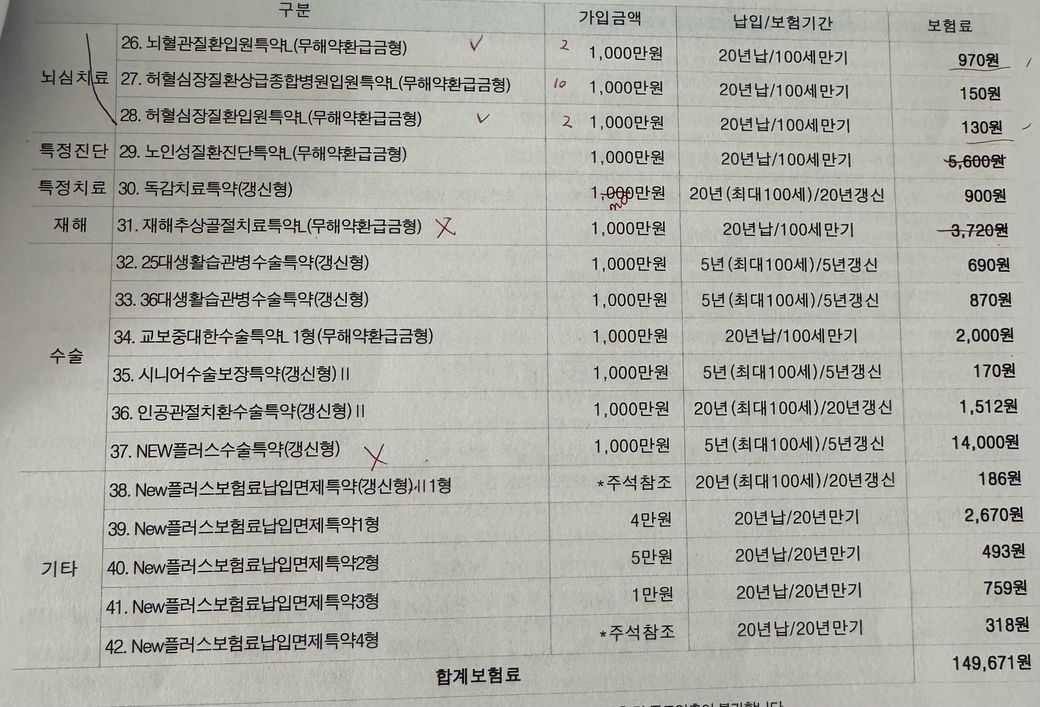 구분 가입금액 납입/보험기간 보험료
26. 뇌혈관질환입원특약L(무해약환급금형) ✓ 2 1,000만원 20년납/100세만기 970원
뇌심치료 27. 허혈심장질환상급종합병원입원특약L(무해약환급금형) 10 1,000만원 20년납/100세만기 150원
28. 허혈심장질환입원특약L(무해약환급금형) ✓ 2 1,000만원 20년납/100세만기 130원
특정진단 29. 노인성질환진단특약L(무해약환급금형) 1,000만원 20년납/100세만기 5,600원
특정치료 30. 독감치료특약(갱신형) 1,000만원 20년(최대100세)/20년갱신 900원
재해 31. 재해추상골절치료특약L(무해약환급금형) X 1,000만원 20년납/100세만기 3,720원
32. 25대생활습관병수술특약(갱신형) 1,000만원 5년(최대100세)/5년갱신 690원
33. 36대생활습관병수술특약(갱신형) 1,000만원 5년(최대100세)/5년갱신 870원
수술 34. 교보중대한수술특약L 1형(무해약환급금형) 1,000만원 20년납/100세만기 2,000원
35. 시니어수술보장특약(갱신형)Ⅱ 1,000만원 5년(최대100세)/5년갱신 170원
36. 인공관절치환수술특약(갱신형)Ⅱ 1,000만원 20년(최대100세)/20년갱신 1,512원
37. NEW플러스수술특약(갱신형) X 1,000만원 5년(최대100세)/5년갱신 14,000원
38. New플러스보험료납입면제특약(갱신형)Ⅱ1형 *주석참조 20년(최대100세)/20년갱신 186원
39. New플러스보험료납입면제특약1형 4만원 20년납/20년만기 2,670원
기타 40. New플러스보험료납입면제특약2형 5만원 20년납/20년만기 493원
41. New플러스보험료납입면제특약3형 1만원 20년납/20년만기 759원
42. New플러스보험료납입면제특약4형 *주석참조 20년납/20년만기 318원
합계보험료 149,671원